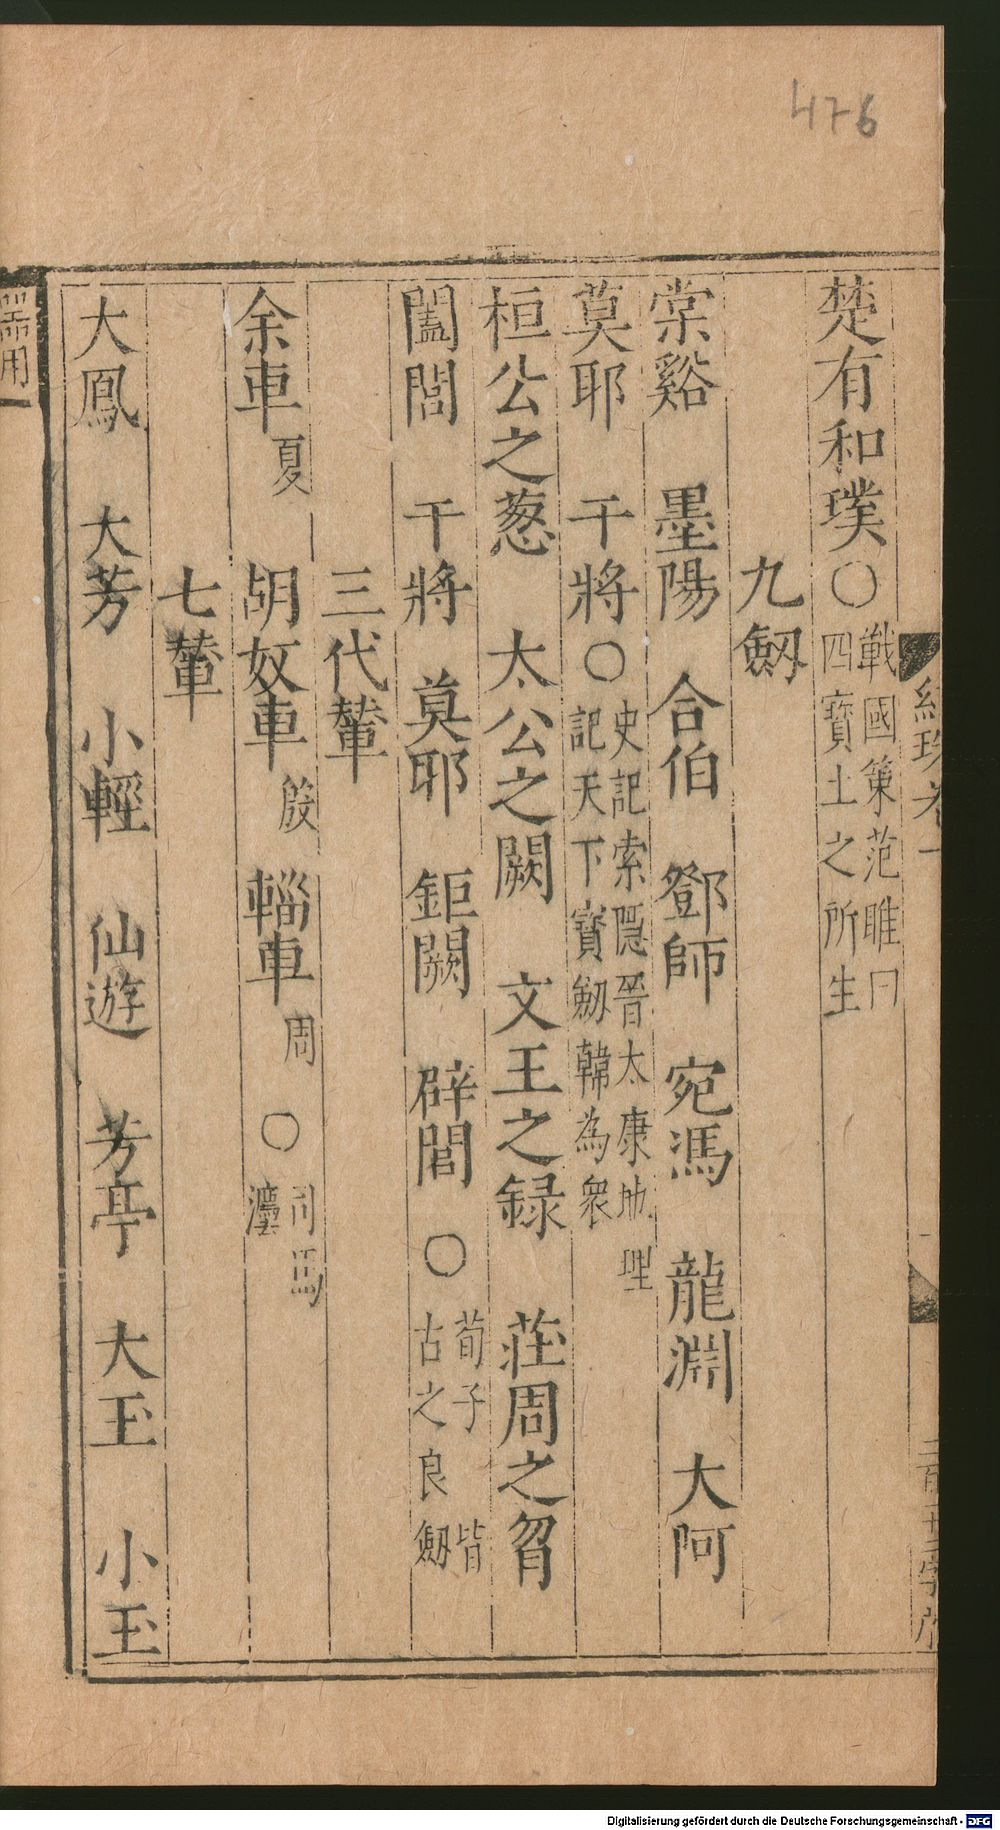 476
楚有和璞〇戰國策范雎曰四寶土之所生
九劒
棠谿 墨陽 合伯 鄧師 宛馮 龍淵 大阿
莫耶 干將〇史記索隱晉太康地理記天下寶劒韓為衆
桓公之葱 太公之闕 文王之録 莊周之曶
闔閭 干將 莫耶 鉅闕 辟閭〇荀子皆古之良劒
三代輦
余車夏 胡奴車殷 輜車周〇司馬灋
七輦
大鳳 大芳 小輕 仙遊 芳亭 大玉 小玉
器用一
Digitalisierung gefördert durch die Deutsche Forschungsgemeinschaft - DFG